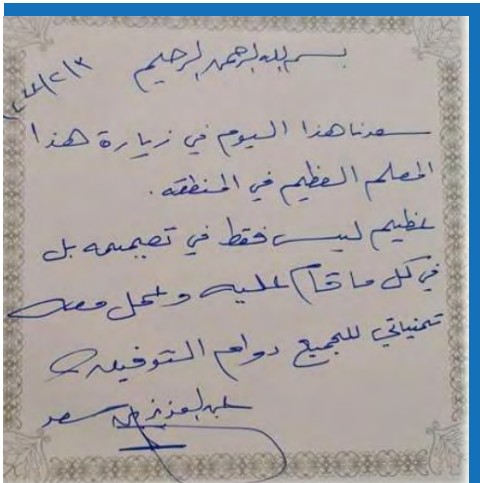 بسم الله الرحمن الرحيم
سعدنا هذا اليوم في زيارة هذا
المعلم العظيم في المنطقه.
عظيم ليس فقط في تصميمه بل
في كل ما قام عليه وعمل معه
تمنياتي للجميع دوام التوفيق
عبدالعزيز بن سعد